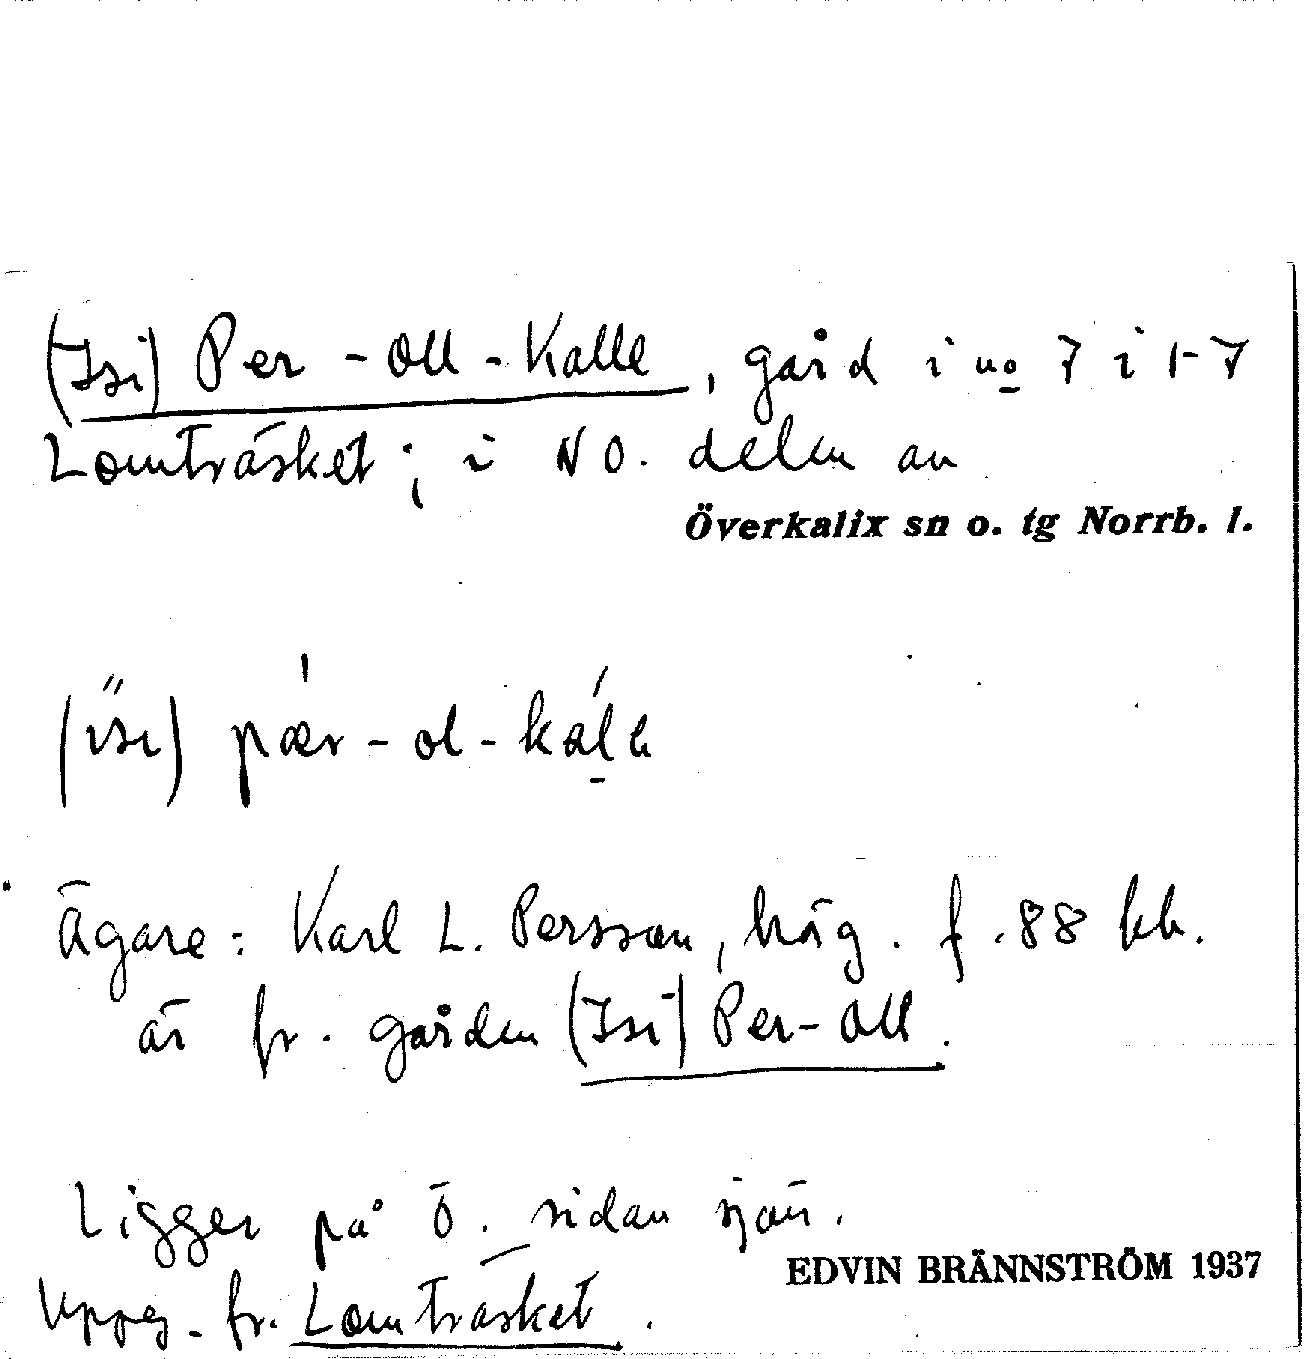 (Isi) Per-Oll-Kalle, gård i no 7 i 1-7
Lomträsket; i NO. delen av
Överkalix sn o. tg Norrb. l.
pær-ol-
Ägare: Karl L. Persson, häg. f. 88 hh.
är fr. gården (Isi) Per-Oll.
Ligger på Ö. sidan sjön.
Uppg. fr. Lomträsket.
EDVIN BRÄNNSTRÖM 1937